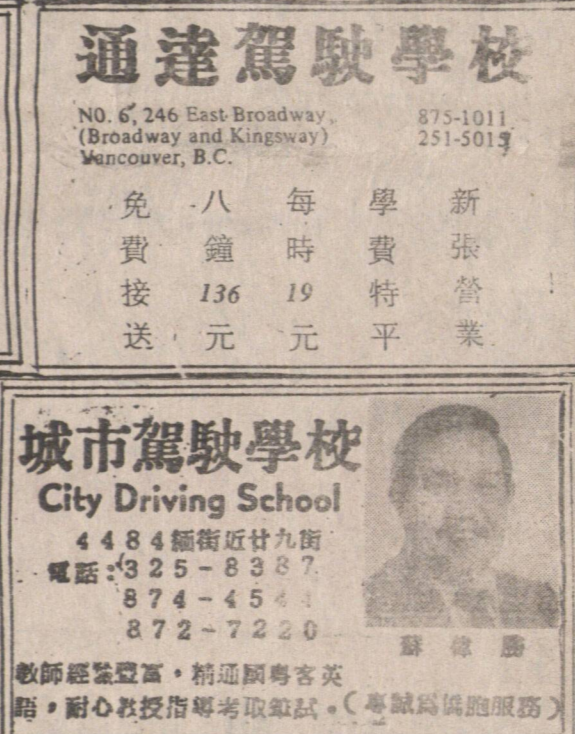 通達駕駛學校
NO. 6, 246 East Broadway, 875-1011
(Broadway and Kingsway) 251-5017
Vancouver, B.C.
新張營業
學費特平
每時19元
八鐘136元
免費接送
城市駕駛學校
City Driving School
4484緬街近廿九街
電話:325-8387
874-45
872-7220
蘇偉勝
教師經驗豐富,精通國粵客英
語,耐心教授指導考取筆試。(專誠爲僑胞服務)